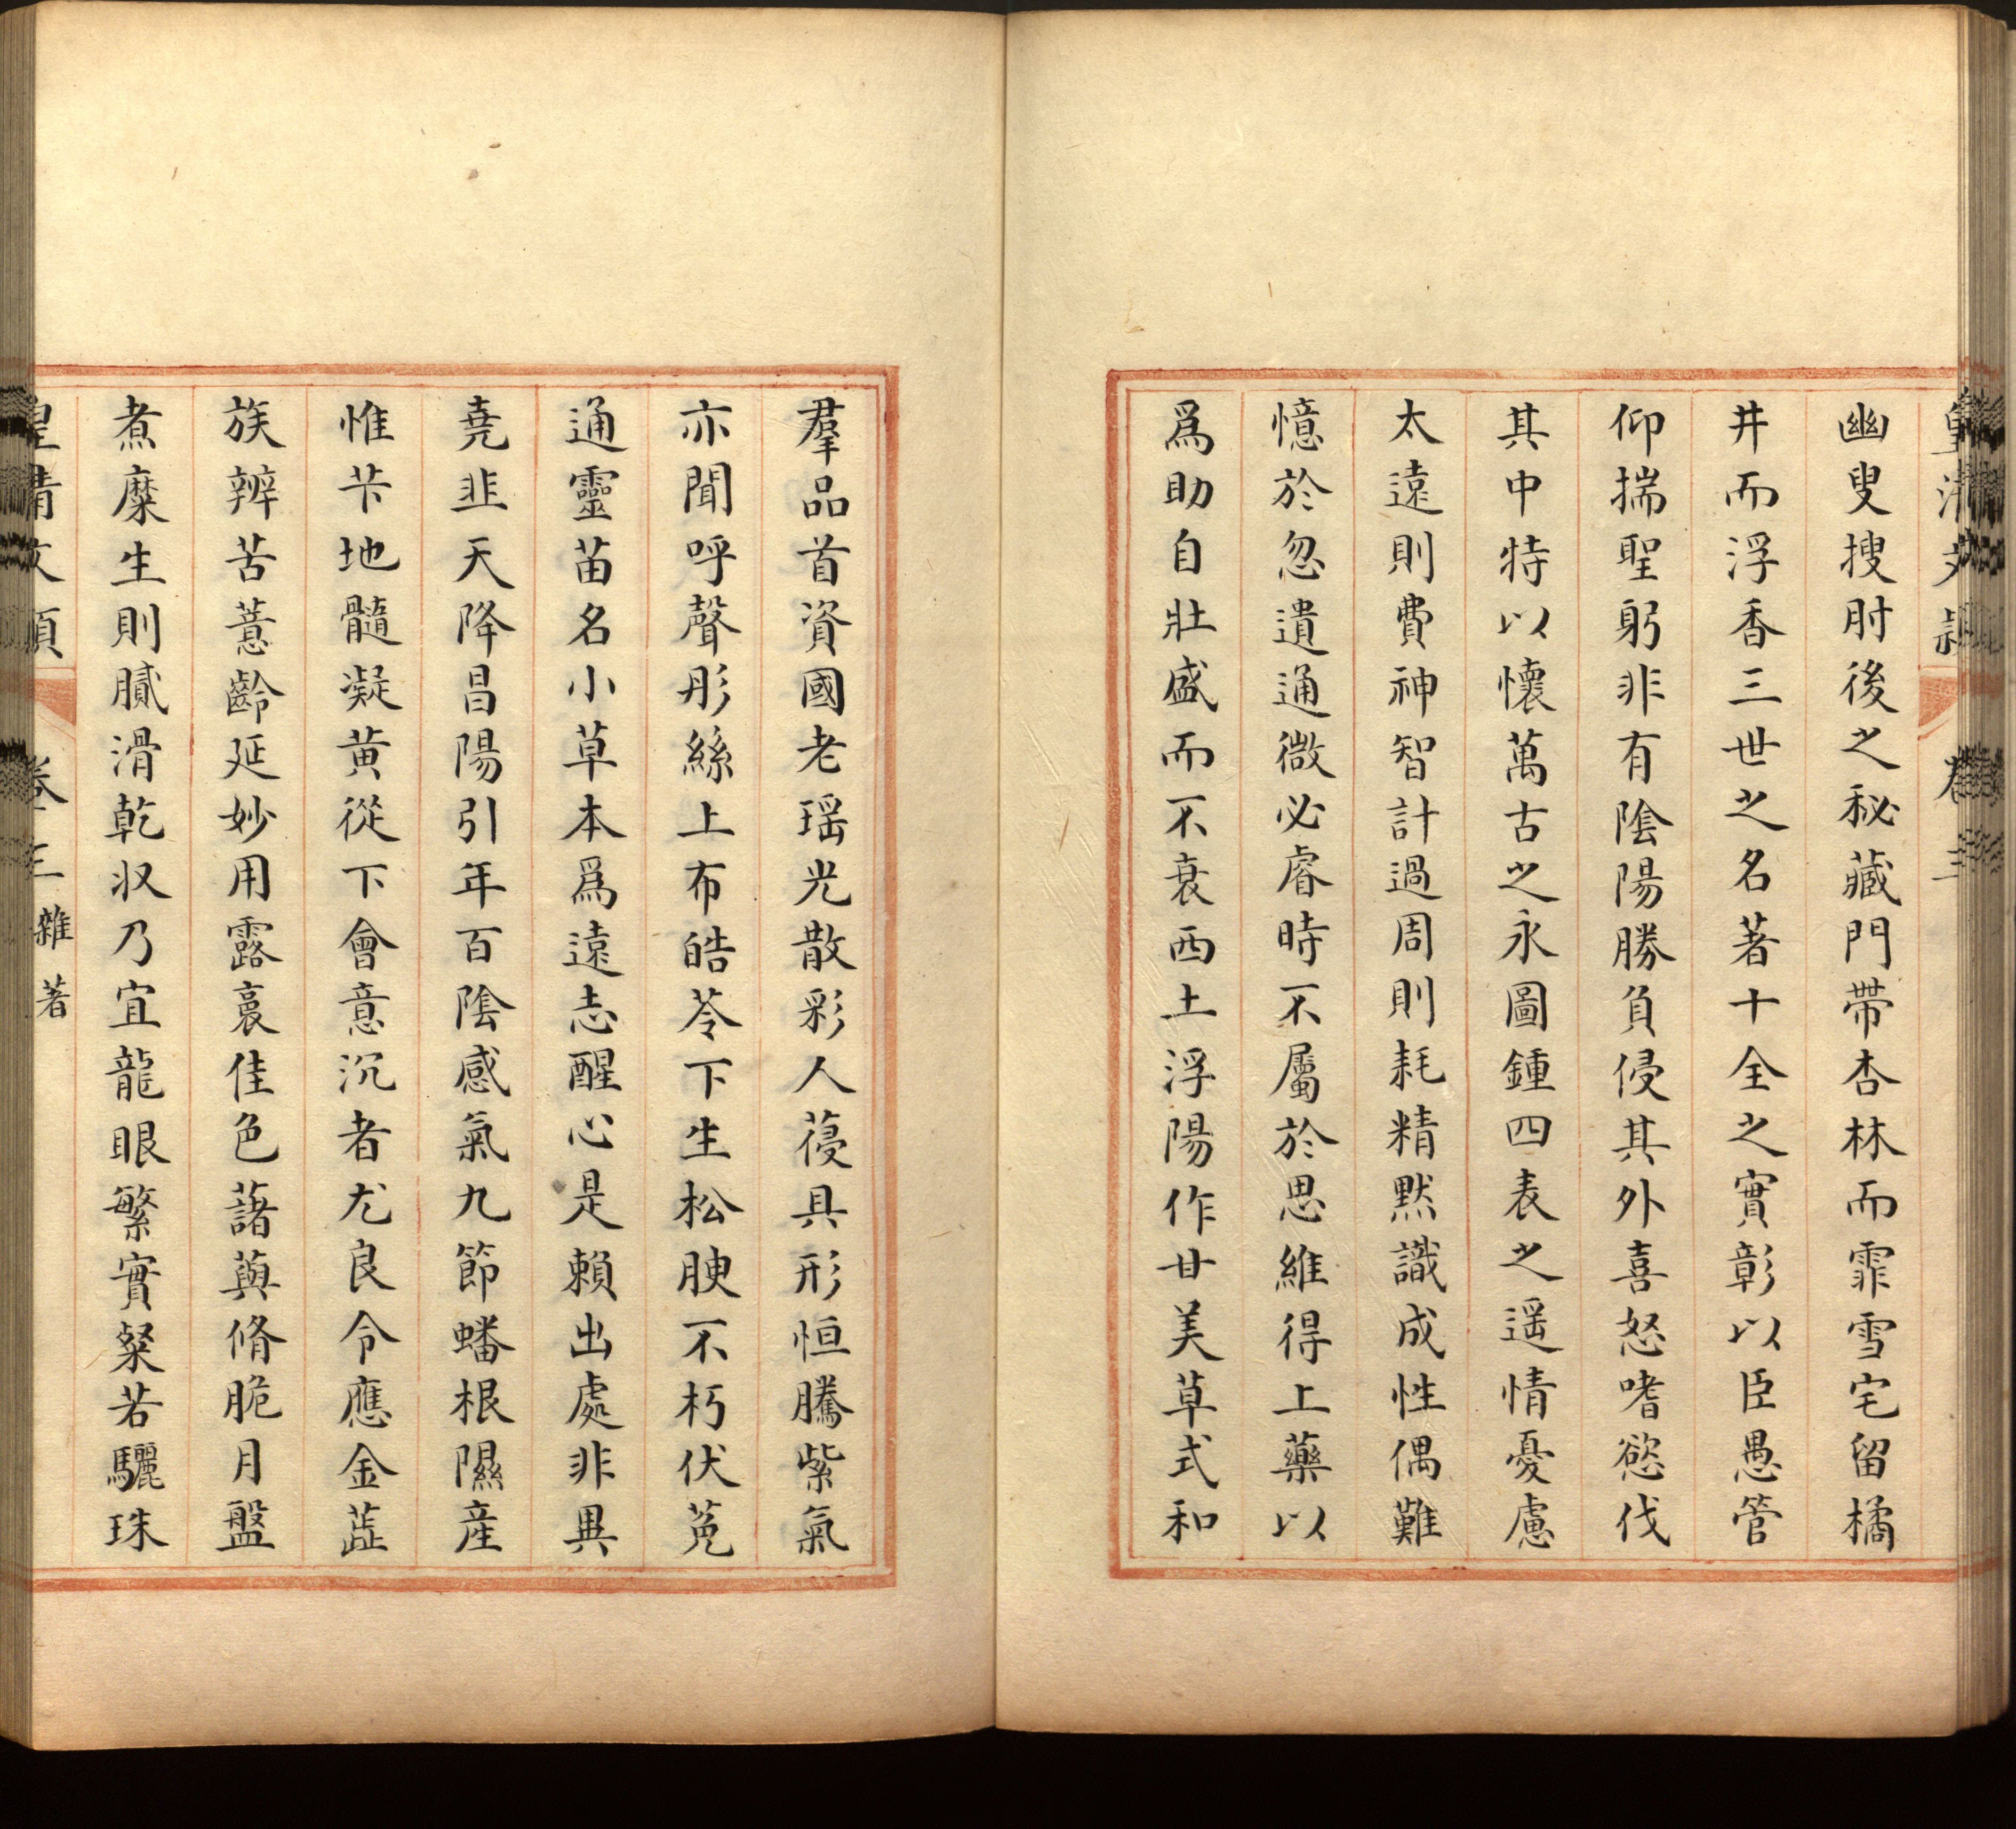 幽叟搜肘後之秘藏門帶杏林而霏雪宅留橘
井而浮香三世之名著十全之實彰以臣愚管
仰揣聖躬非有陰陽勝負侵其外喜怒嗜慾伐
其中特以懷萬古之永圖鍾四表之遥情憂慮
太遠則費神智計過周則耗精黙識成性偶難
憶於忽遺通微必睿時不屬於思維得上藥以
爲助自壯盛而不衰西土浮陽作甘美草式和
羣品首資國老瑶光散彩人葠具形恒騰紫氣
亦聞呼聲彤絲上布皓苓下生松腴不朽伏菟
通靈苗名小草本爲遠志醒心是賴出處非異
堯韭天降昌陽引年百陰感氣九節蟠根隰産
惟芐地髓凝黄從下會意沉者尤良令應金蓝
族辨苦薏齡延妙用露裛佳色藷藇脩脆月盤
煮糜生則膩滑乾収乃宜龍眼繁實粲若驪珠
皇清文頴 卷三 雜著